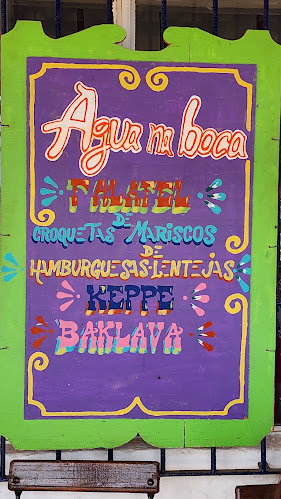 Àgua na boca
FALAFEL
DE
CROQUETAS MARISCOS
DE
HAMBURGUESAS LENTEJAS
KEPPE
BAKLAVA